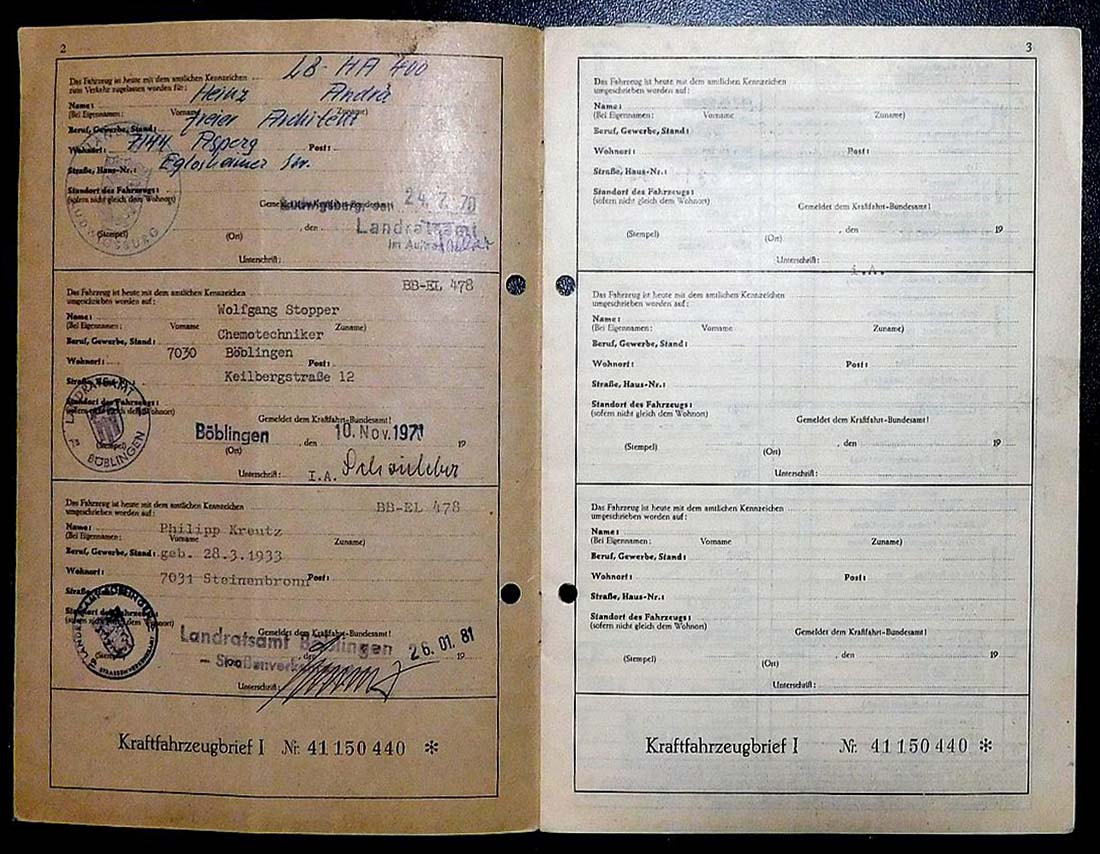 2
Das Fahrzeug ist heute mit dem amtlichen Kennzeichen LB-HA 400
zum Verkehr zugelassen worden für:
Name: Heinz André
(Bei Eigennamen: Vorname Zuname)
Beruf, Gewerbe, Stand: freier Architekt
Wohnort: 7144 Asperg Post:
Straße, Haus-Nr.: Eglosheimer Str.
Standort des Fahrzeugs:
(sofern nicht gleich dem Wohnort)
Gemeldet dem Kraftfahrt-Bundesamt!
Ludwigsburg, den 24. 7. 70
(Stempel) (Ort) , den
Landratsamt
im Auftrag
Unterschrift:
LUDWIGSBURG
Das Fahrzeug ist heute mit dem amtlichen Kennzeichen BB-EL 478
umgeschrieben worden auf:
Name: Wolfgang Stopper
(Bei Eigennamen: Vorname Zuname)
Beruf, Gewerbe, Stand: Chemotechniker
Wohnort: 7030 Böblingen Post:
Straße, Haus-Nr.: Keilbergstraße 12
Standort des Fahrzeugs:
(sofern nicht gleich dem Wohnort)
Gemeldet dem Kraftfahrt-Bundesamt!
Böblingen , den 10. Nov. 1971 19
(Stempel) (Ort)
Unterschrift: I.A.
LANDRATSAMT BÖBLINGEN
Das Fahrzeug ist heute mit dem amtlichen Kennzeichen BB-EL 478
umgeschrieben worden auf:
Name: Philipp Kreutz
(Bei Eigennamen: Vorname Zuname)
Beruf, Gewerbe, Stand: geb. 28.3.1933
Wohnort: 7031 Steinenbronn Post:
Straße
Standort des Fahrzeugs
(sofern nicht gleich dem Wohnort)
Gemeldet dem Kraftfahrt-Bundesamt!
Landratsamt Böblingen 26. 01. 81
(Stempel) den 19
Unterschrift:
Kraftfahrzeugbrief I Nr. 41 150 440 *
3
Das Fahrzeug ist heute mit dem amtlichen Kennzeichen
umgeschrieben worden auf:
Name:
(Bei Eigennamen: Vorname Zuname)
Beruf, Gewerbe, Stand:
Wohnort: Post:
Straße, Haus-Nr.:
Standort des Fahrzeugs:
(sofern nicht gleich dem Wohnort)
Gemeldet dem Kraftfahrt-Bundesamt!
(Stempel) (Ort) , den 19
Unterschrift:
i.A.
Das Fahrzeug ist heute mit dem amtlichen Kennzeichen
umgeschrieben worden auf:
Name:
(Bei Eigennamen: Vorname Zuname)
Beruf, Gewerbe, Stand:
Wohnort: Post:
Straße, Haus-Nr.:
Standort des Fahrzeugs:
(sofern nicht gleich dem Wohnort)
Gemeldet dem Kraftfahrt-Bundesamt!
(Stempel) (Ort) , den 19
Unterschrift:
Das Fahrzeug ist heute mit dem amtlichen Kennzeichen
umgeschrieben worden auf:
Name:
(Bei Eigennamen: Vorname Zuname)
Beruf, Gewerbe, Stand:
Wohnort: Post:
Straße, Haus-Nr.:
Standort des Fahrzeugs:
(sofern nicht gleich dem Wohnort)
Gemeldet dem Kraftfahrt-Bundesamt!
(Stempel) (Ort) , den 19
Unterschrift:
Kraftfahrzeugbrief I Nr. 41 150 440 *